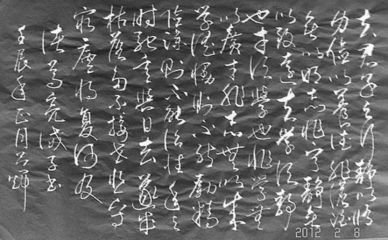 夫君子之行静以修
身俭以养德非淡泊
无以明志非宁静无
以致远夫学须静
也才须学也非学无
以广才非志无以成
学淫慢则不能励精
险躁则不能治性年与
时驰意与日去遂成
枯落多不接世悲守
穷庐将复何及
诸葛亮诫子书
壬辰年正月 辉
2012 2 8